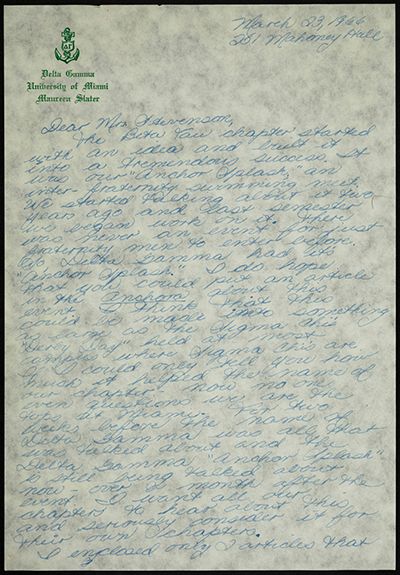 March 23, 1966
251 Mahoney Hall
Delta Gamma
University of Miami
Maureen Slater
Dear Mrs. Stevenson,
The Beta Tau chapter started
with an idea and built it
into a tremendous success. It
was our "Anchor Splash," an
inter-fraternity swimming meet.
We started talking about it two
years ago and last semester
we began work on it. There
was never an event for just
fraternity men to enter before.
So Delta Gamma had its
"Anchor Splash." I do hope
that you could put an article
in the Anchora about this
event. I think that this
could be made into something
as same as the Sigma Chis
"Derby Day" held at most
campuses where Sigma Chis are.
If I could only tell you how
much it helped the name of
our chapter. Now no one
even questions we are the
tops at Miami. For two
weeks before the name of
Delta Gamma was all that
was talked about and the
Delta Gamma "Anchor Splash"
is still being talked about
now over a month after the
event. I want all our
chapters to hear about this
and seriously consider it for
their own chapters.
I enclosed only 2 articles that